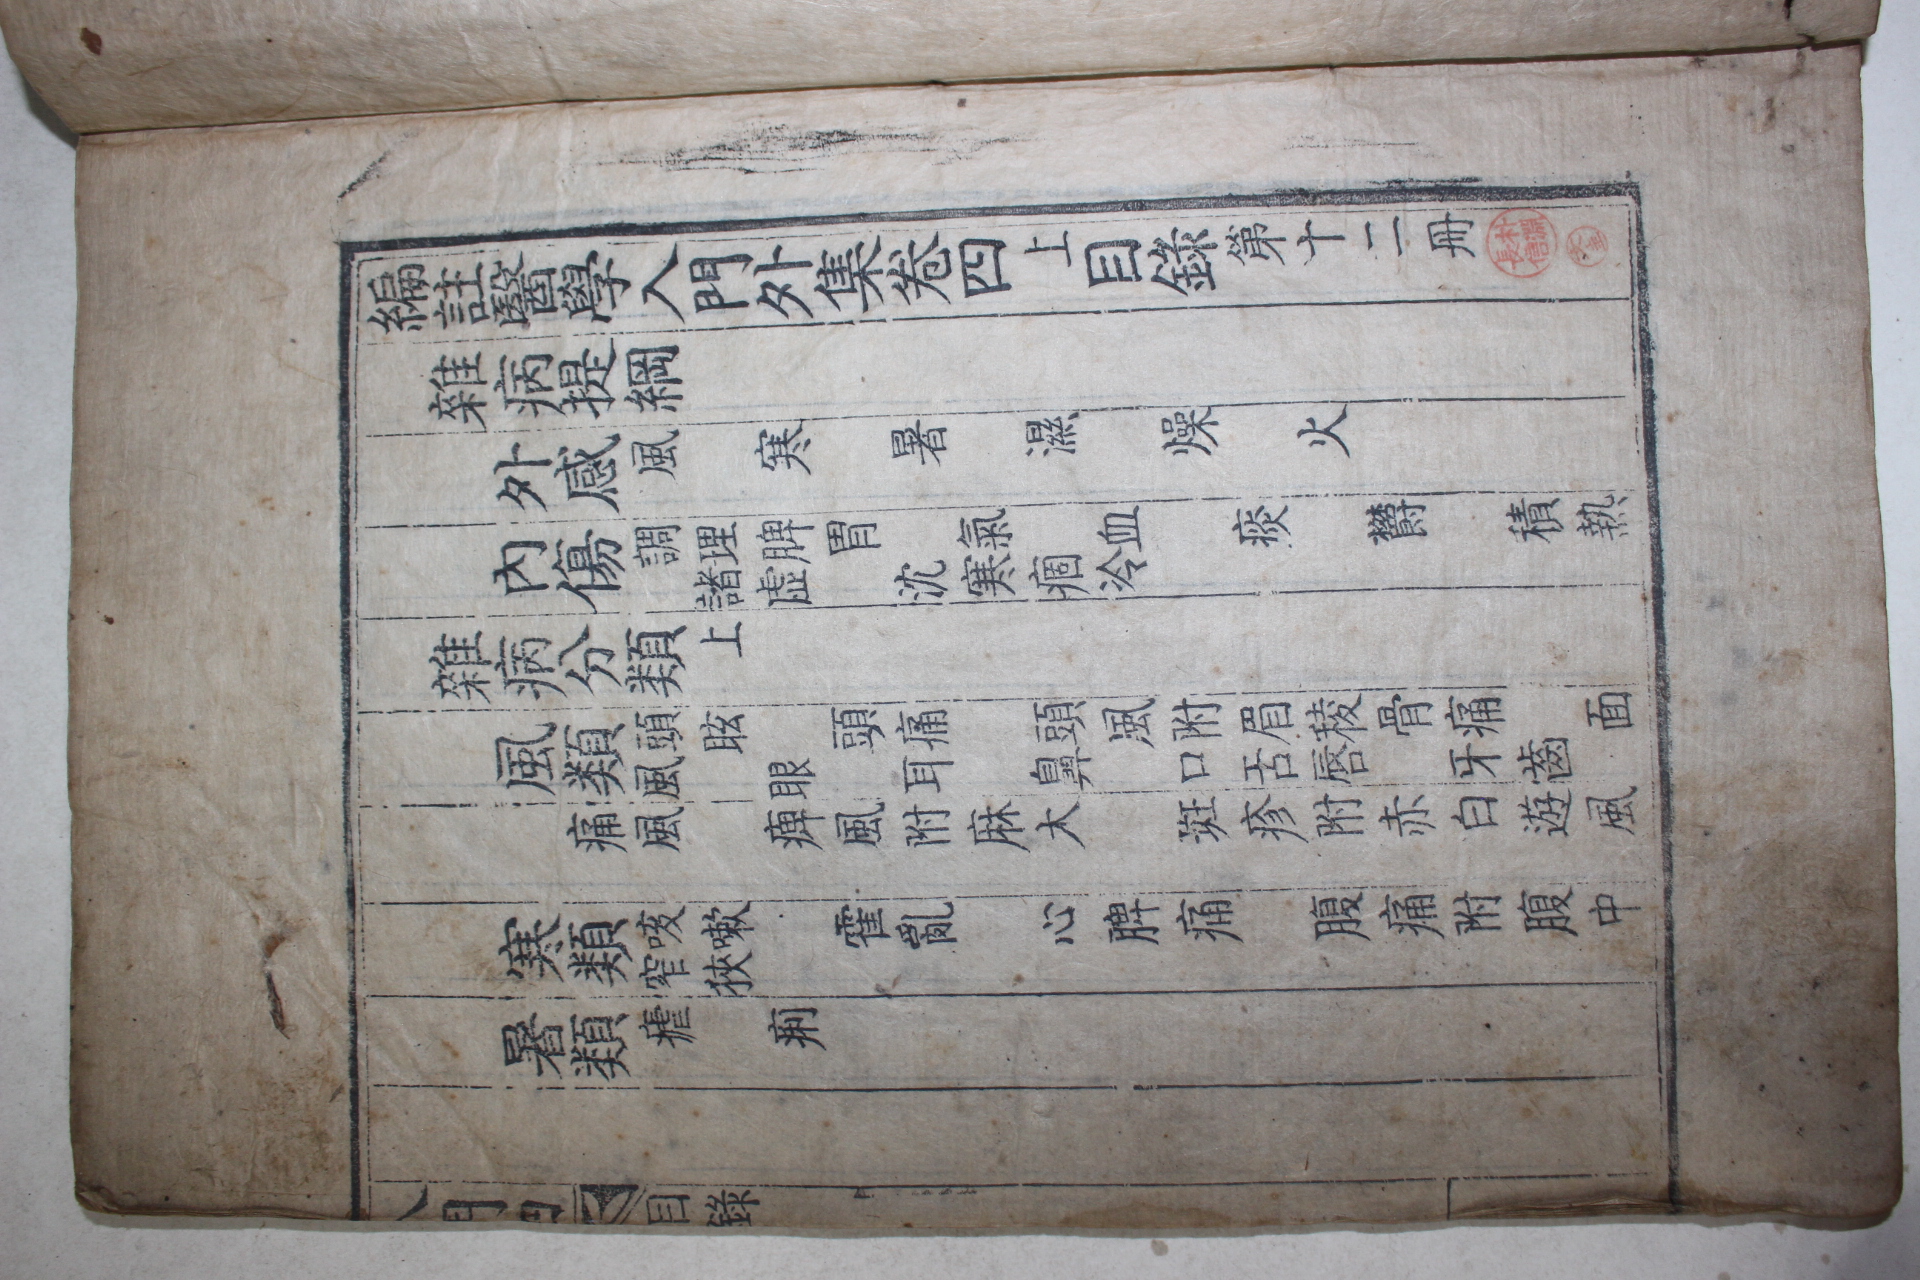 編註醫學入門外集卷四上目錄第十二冊
雜病提綱
外感風 寒 暑 濕 燥 火
內傷調理脾胃 氣 血 痰 鬱 積熱
諸虛 沈寒痼冷
雜病分類上
風類頭眩 頭痛 頭風附眉稜骨痛 面
風 眼 耳 鼻 口舌唇 牙齒
痛風 痺風附麻木 斑疹附赤白遊風
寒類咳嗽 霍亂 心脾痛 腹痛附腹中
窄狹
暑類瘧 痢
入門四 目錄
朴淵
長信